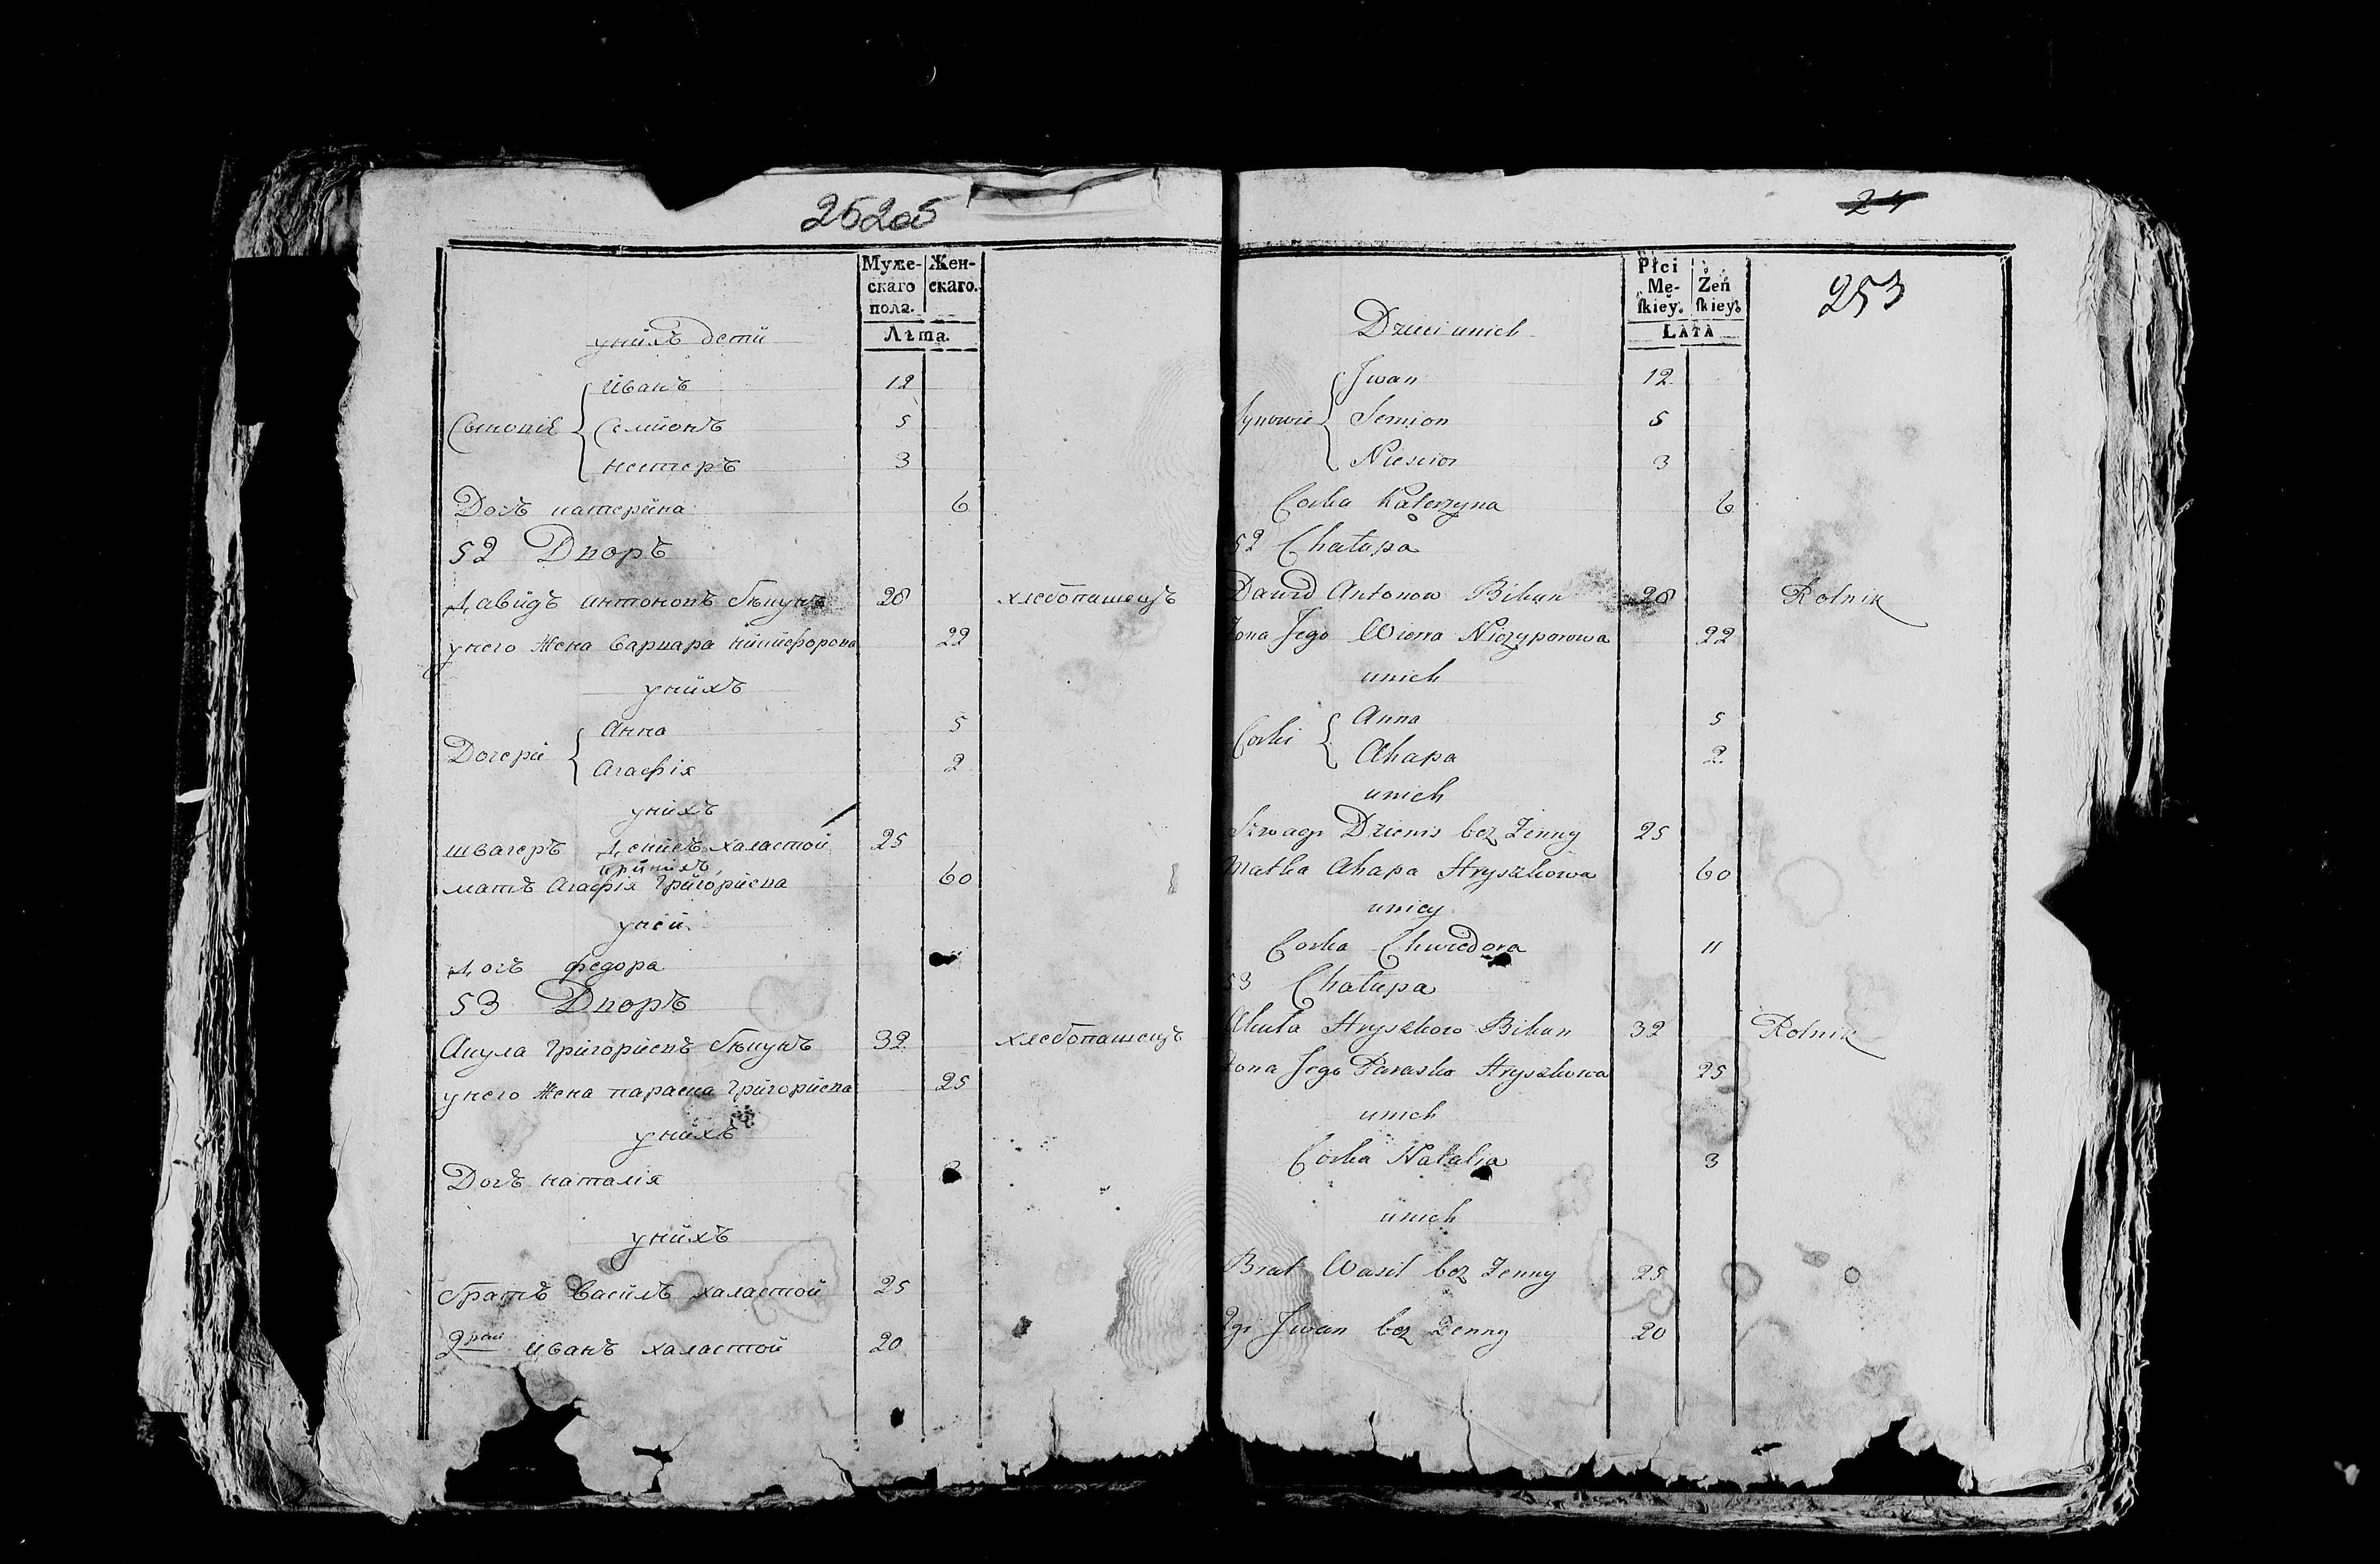 252об
Муже-
скаго
пола.
Жен-
скаго.
Лѣта.
унихъ дети
Сыновія
Иванъ 12
Семионъ 5
нестеръ 3
Дочъ катерина 6
52 Дворъ
Давидъ Антоновъ бѣкунъ 28 хлебопашецъ
унего жена варвара никифорова 22
унихъ
Дочери
Анна 5
Агафія 2
унихъ
швагеръ Денисъ халастой 25
при нихъ
матъ Агафія Григориева 60
уней
Дочъ федора
53 Дворъ
Акула Григориевъ бѣкунъ 32 хлебопашецъ
унего жена параска Григориева 25
унихъ
Дочъ наталія 3
унихъ
братъ василъ халастой 25
2рой иванъ халастой 20
24
253
Płci
Mę-
skiey.
Żeń
skiey
LATA
Dzieci unich
Synowie
Jwan 12
Semion 5
Niescior 3
Corka Katerzyna 6
52 Chałupa
Dawid Antonow Bikun 28 Rolnik
Zona Jego Wierra Niczyporowa 22
unich
Corki
Anna 5
Ahapa 2
unich
Szwagr Dzienis bez Zenny 25
Matka Ahapa Hryszkowa 60
unicy
Corka Chwiedora 11
53 Chałupa
Akuła Hryszkow Bikun 32 Rolnik
Zona Jego Paraska Hryszkowa 25
unich
Corka Natalia 3
unich
Brat Wasil bez Zenny 25
2gi Jwan bez Zenny 20